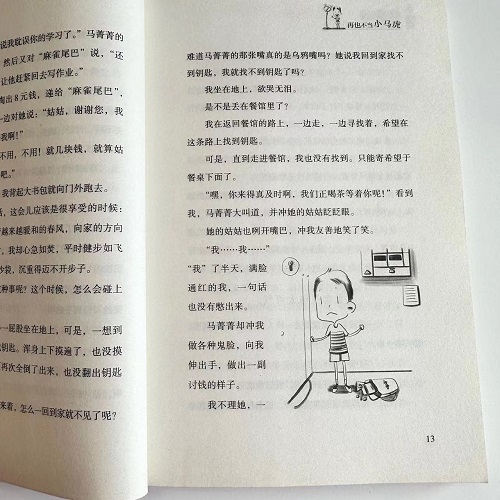 说我耽误你的学习了。”马菁菁的
然后又对“麻雀尾巴”说，“还
让他赶紧回去写作业。”
掏出8元钱，递给“麻雀尾巴”，
一边对她说：“姑姑，谢谢您，我
我啊！”
不用，不用！就几块钱，就算姑
吧。”
我背起大书包就向门外跑去。
话，这会儿应该是很享受的时候：
着越来越暖和的春风，向家的方向
，我却心急如焚，平时健步如飞
沙袋，沉重得迈不开步子。
种事呢？这个时候，怎么会碰上
一屁股坐在地上，可是，一想到
钥匙。浑身上下摸遍了，也没摸
再次全倒了出来，也没翻出钥匙
来着，怎么一回到家就不见了呢？
再也不当小马虎
难道马菁菁的那张嘴真的是乌鸦嘴吗？她说我回到家找不
到钥匙，我就找不到钥匙了吗？
我坐在地上，欲哭无泪。
是不是丢在餐馆里了？
我在返回餐馆的路上，一边走，一边寻找着，希望在
这条路上找到钥匙。
可是，直到走进餐馆，我也没有找到。只能寄希望于
餐桌下面了。
“嘿，你来得真及时啊，我们正喝茶等着你呢！”看到
我，马菁菁大叫道，并冲她的姑姑眨眨眼。
她的姑姑也咧开嘴巴，冲我友善地笑了笑。
“我……我……”
“我”了半天，满脸
通红的我，一句话
也没有憋出来。
马菁菁却冲我
做各种鬼脸，向我
伸出手，做出一副
讨钱的样子。
我不理她，一
13